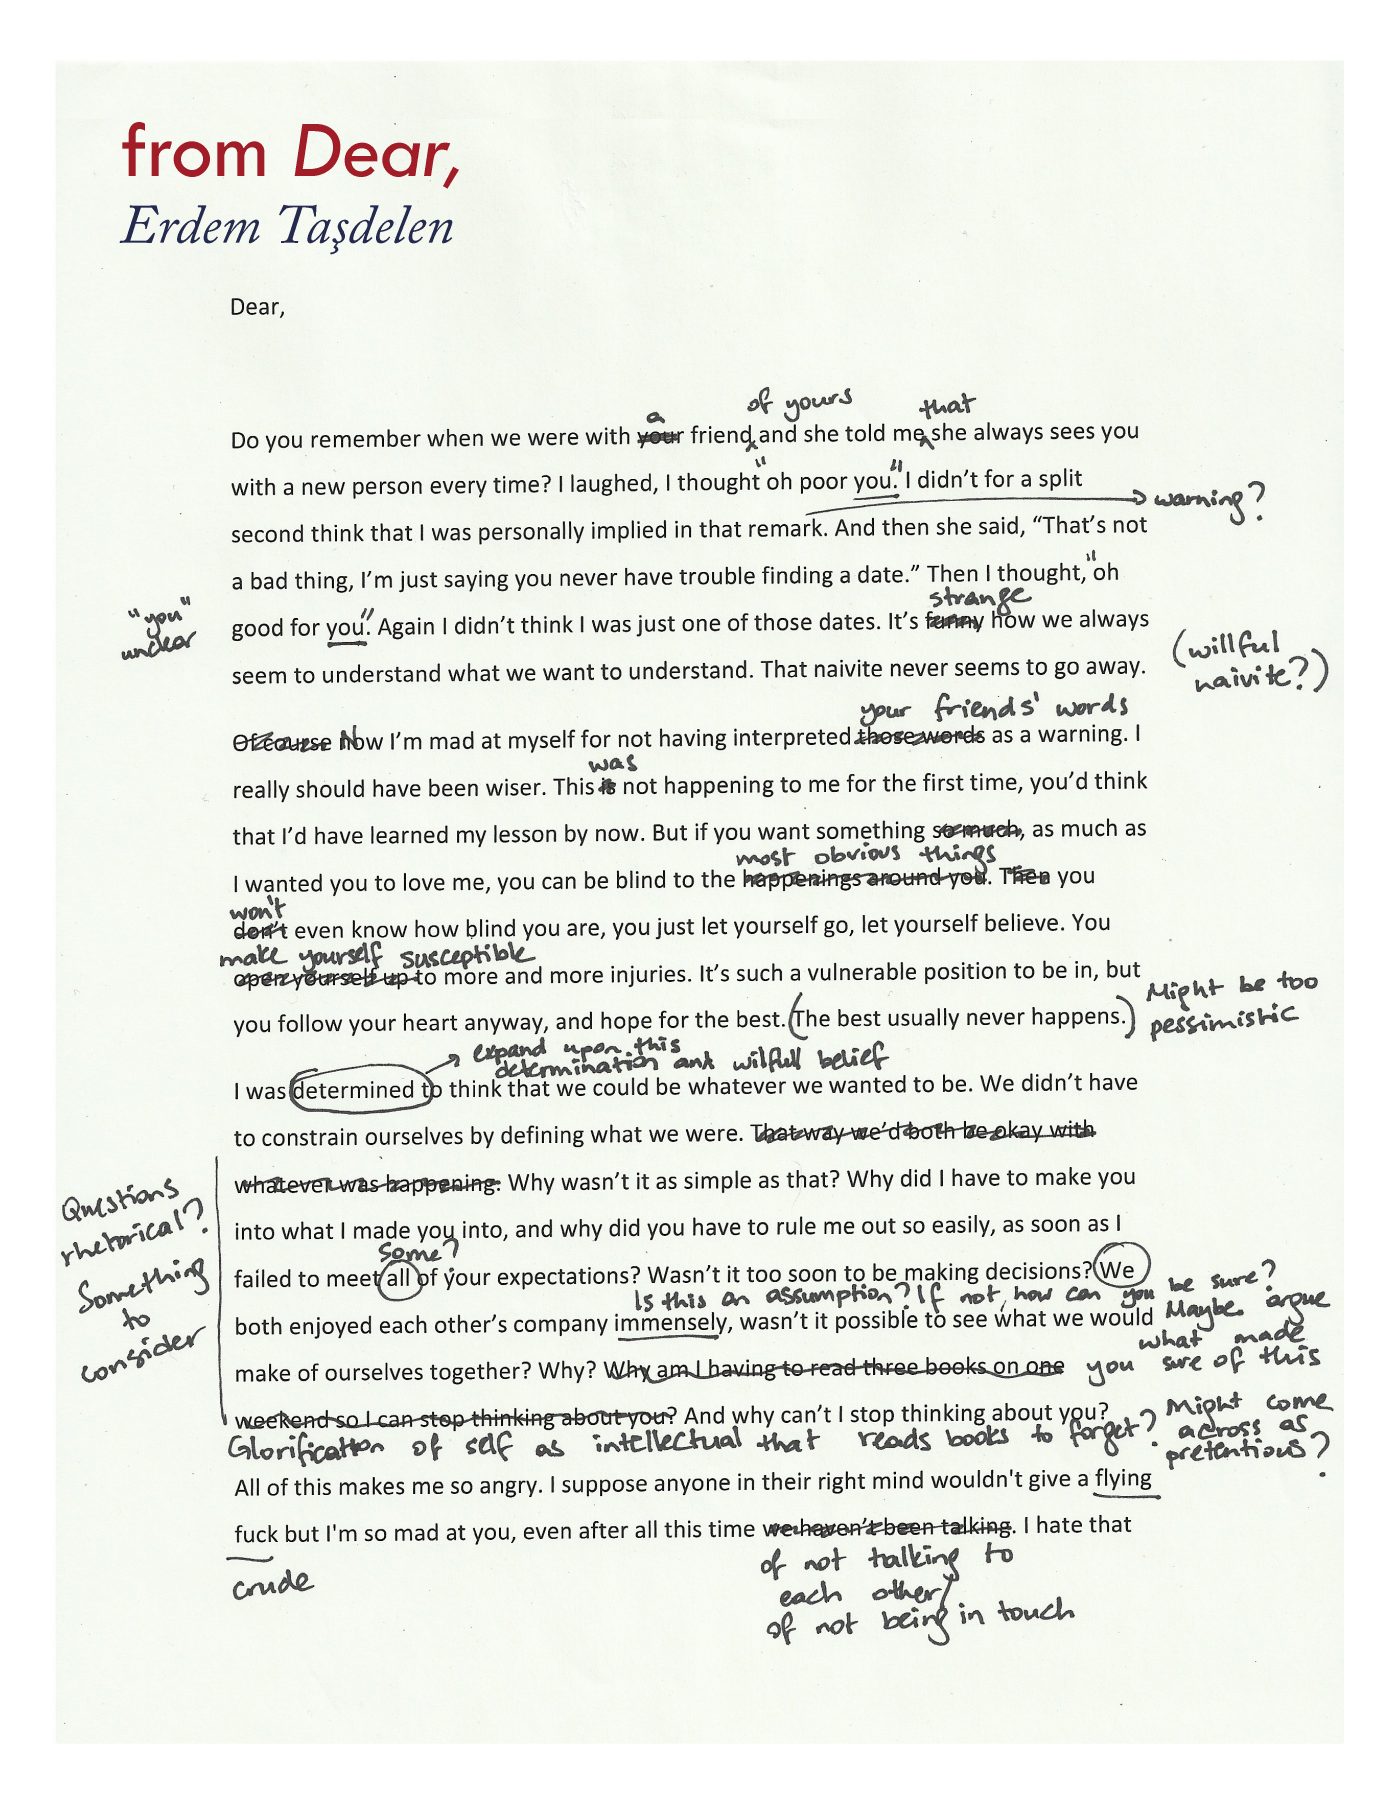 from Dear,
Erdem Taşdelen
Dear,
a of yours that
Do you remember when we were with your friend and she told me she always sees you
with a new person every time? I laughed, I thought "oh poor you." I didn't for a split
warning?
second think that I was personally implied in that remark. And then she said, “That's not
a bad thing, I'm just saying you never have trouble finding a date.” Then I thought, "oh
"you"
unclear
strange
good for you". Again I didn't think I was just one of those dates. It's funny how we always
(willful
naivite?)
seem to understand what we want to understand. That naivite never seems to go away.
your friends' words
Of course Now I'm mad at myself for not having interpreted those words as a warning. I
was
really should have been wiser. This is not happening to me for the first time, you'd think
that I'd have learned my lesson by now. But if you want something so much, as much as
most obvious things
I wanted you to love me, you can be blind to the happenings around you. Then you
won't
don't even know how blind you are, you just let yourself go, let yourself believe. You
make yourself susceptible
open yourself up to more and more injuries. It's such a vulnerable position to be in, but
Might be too
pessimistic
you follow your heart anyway, and hope for the best. (The best usually never happens.)
expand upon this
determination and wilfull belief
I was determined to think that we could be whatever we wanted to be. We didn't have
to constrain ourselves by defining what we were. That way we'd both be okay with
whatever was happening. Why wasn't it as simple as that? Why did I have to make you
Questions
rhetorical?
Something
to
consider
into what I made you into, and why did you have to rule me out so easily, as soon as I
some?
failed to meet all of your expectations? Wasn't it too soon to be making decisions? We
Is this an assumption? If not, how can you be sure?
Maybe argue
what made
you sure of this
both enjoyed each other's company immensely, wasn't it possible to see what we would
make of ourselves together? Why? Why am I having to read three books on one
weekend so I can stop thinking about you? And why can't I stop thinking about you?
Glorification of self as intellectual that reads books to forget? Might come
across as
pretentious?
All of this makes me so angry. I suppose anyone in their right mind wouldn't give a flying
fuck but I'm so mad at you, even after all this time we haven't been talking. I hate that
crude
of not talking to
each other/
of not being in touch